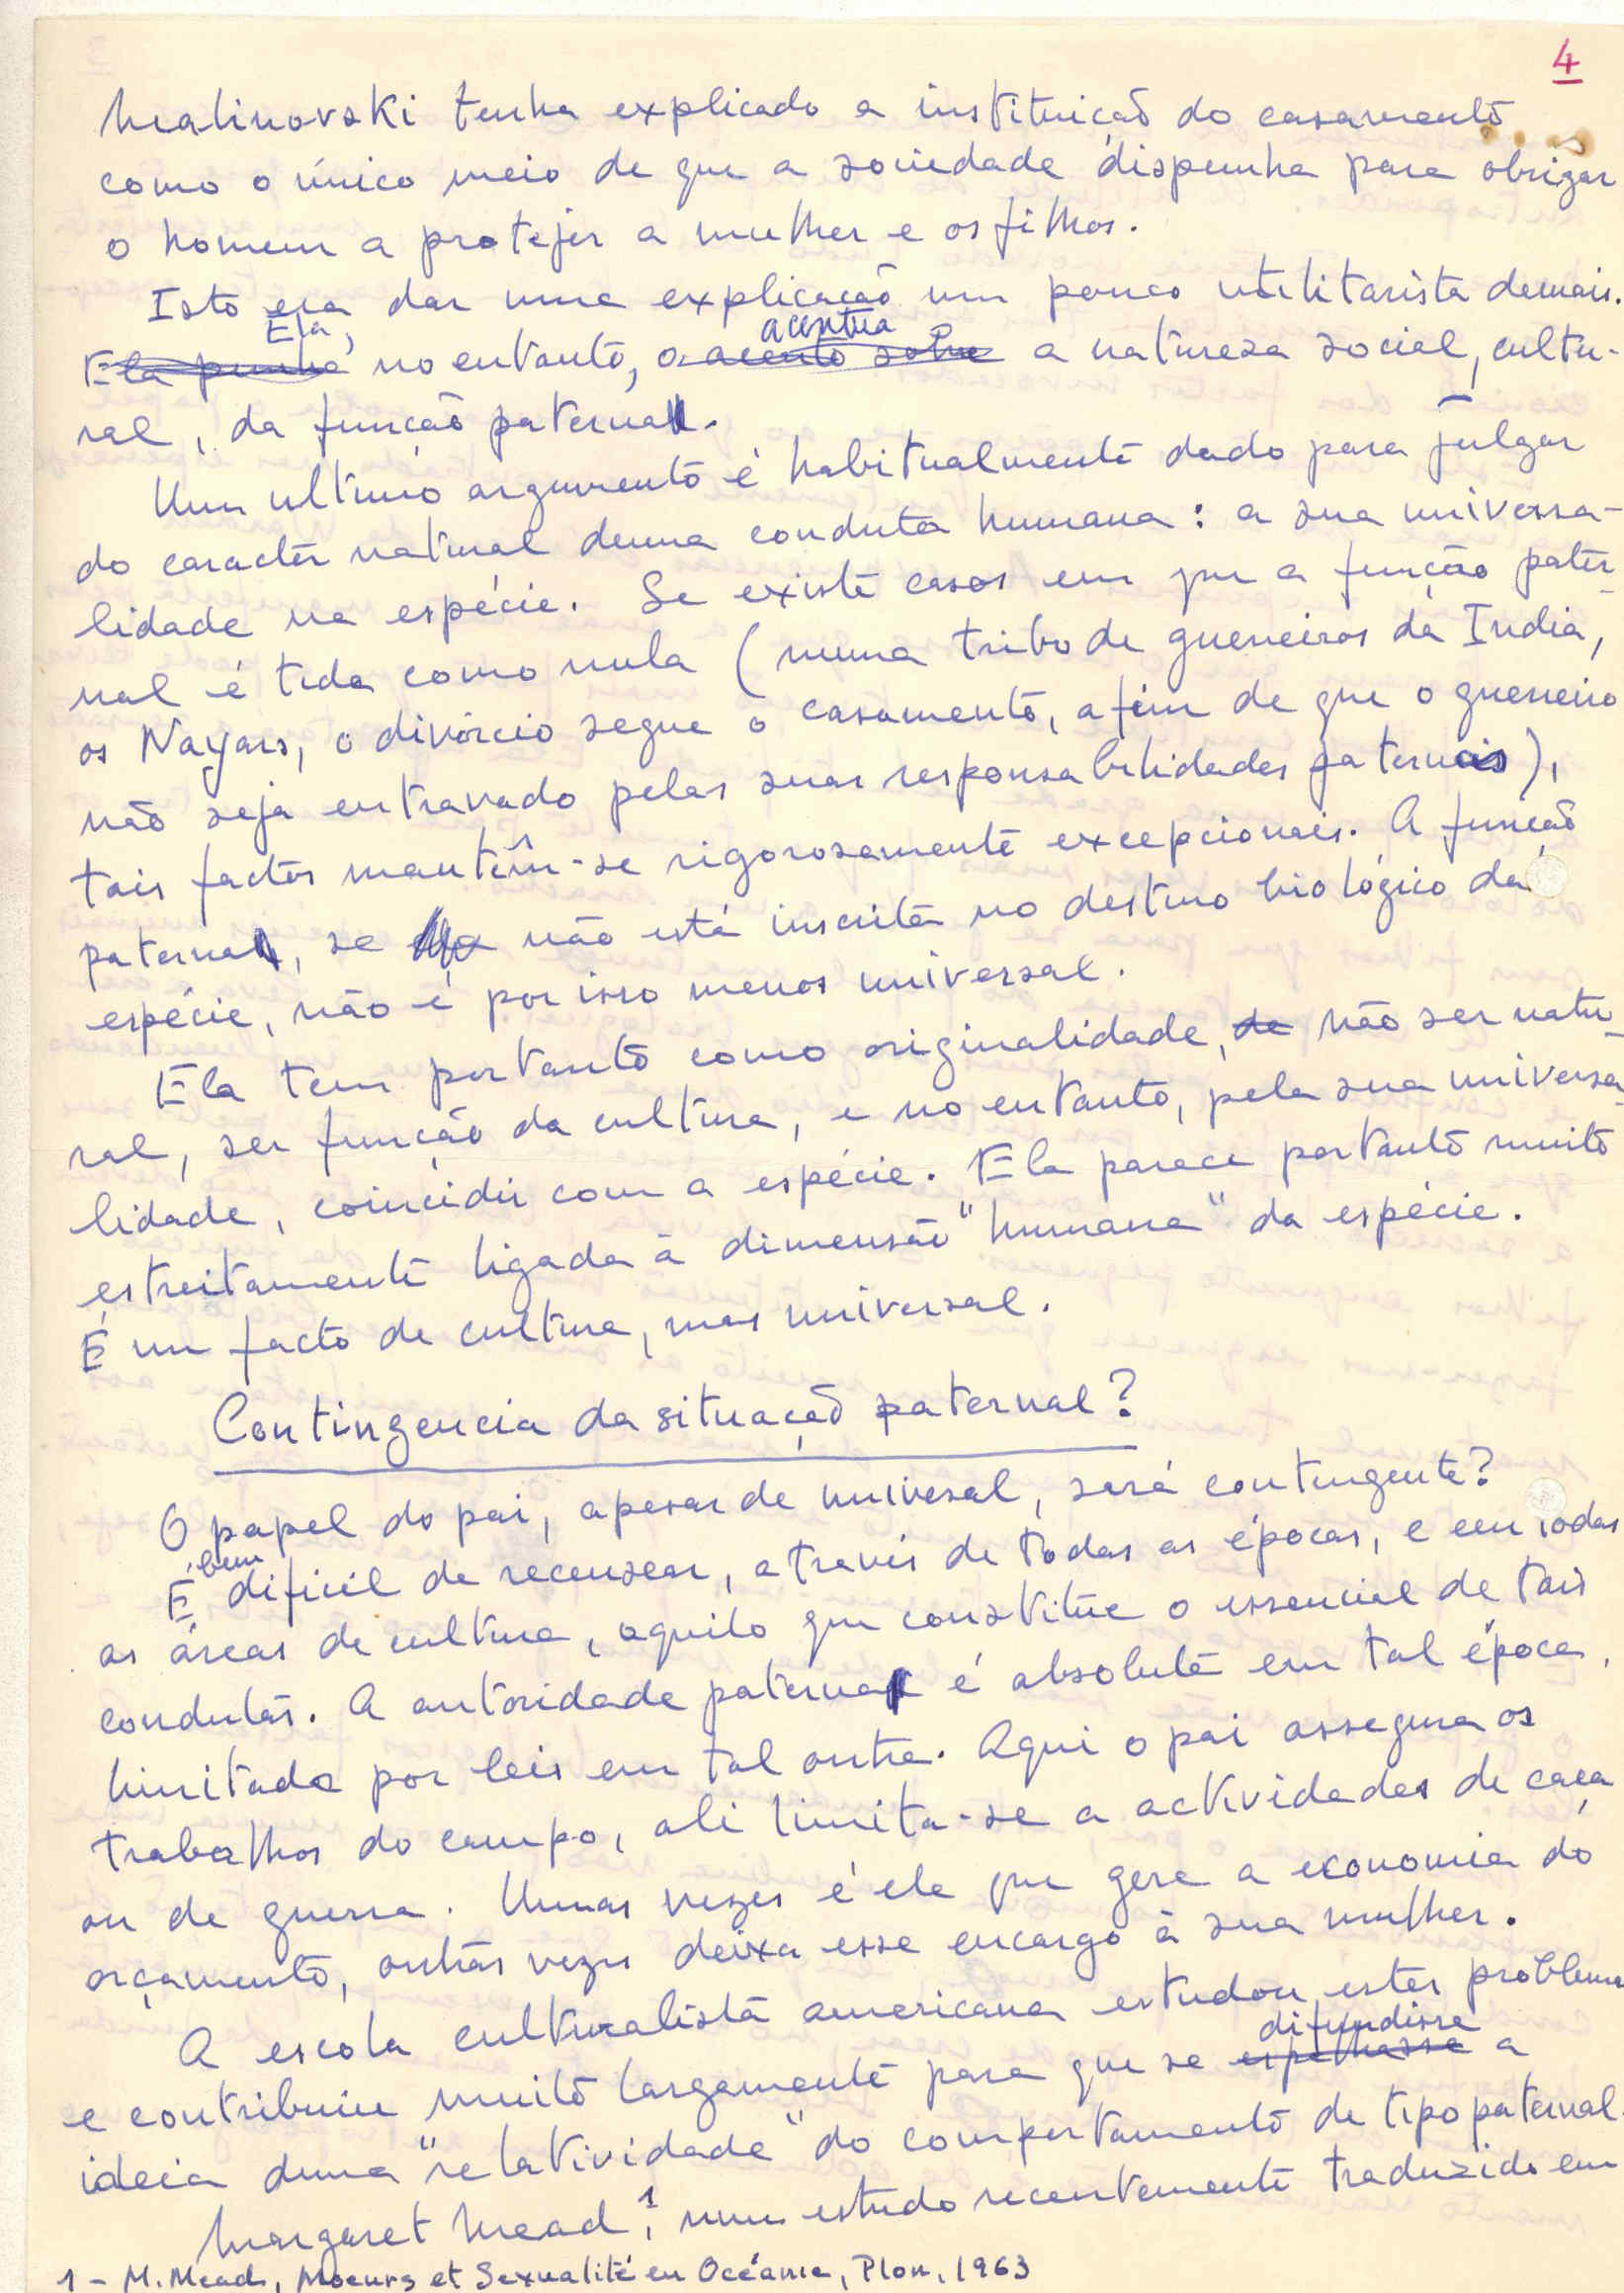 4
Malinovski tenha explicado a instituição do casamento
como o único meio de que a sociedade dispunha para obrigar
o homem a protejer a mulher e os filhos.
Isto era dar uma explicação um pouco utilitarista demais.
Ela, acentua
Ela punha no entanto, o acento sobre a natureza social, cultu-
ral, da função paternal.
Um ultimo argumento é habitualmente dado para julgar
do caracter natural duma conduta humana: a sua universa-
lidade na espécie. Se existe casos em que a função pater-
nal é tida como nula (numa tribo de guerreiros da India,
os Nayars, o divórcio segue o casamento, afim de que o guerreiro
não seja entravado pelas suas responsabilidades paternais),
tais factos mantêm-se rigorosamente excepcionais. A função
paternal, se não está inscrita no destino biológico da
espécie, não é por isso menos universal.
Ela tem portanto como originalidade, de não ser natu-
ral, ser função da cultura, e no entanto, pela sua universa-
lidade, coincidir com a espécie. Ela parece portanto muito
estreitamente ligada à dimensão "humana" da espécie.
É um facto de cultura, mas universal.
Contingencia da situação paternal?
O papel do pai, apesar de univesal, será contingente?
bem
É dificil de recensear, através de todas as épocas, e em todas
as áreas de cultura, aquilo que constitue o essencial de tais
condutas. A autoridade paternal é absoluta em tal época,
limitada por leis em tal outra. Aqui o pai assegura os
trabalhos do campo, ali limita-se a actividades de caça
ou de guerra. Umas vezes é ele que gere a economia do
orçamento, outras vezes deixa esse encargo à sua mulher.
A escola culturalista americana estudou estes problema
difundisse
e contribuiu muito largamente para que se espalhasse a
ideia duma "relatividade" do comportamento de tipo paternal.
Margaret Mead,1 num estudo recentemente traduzido em
1 - M. Mead, Moeurs et Sexualité en Océanie, Plon, 1963